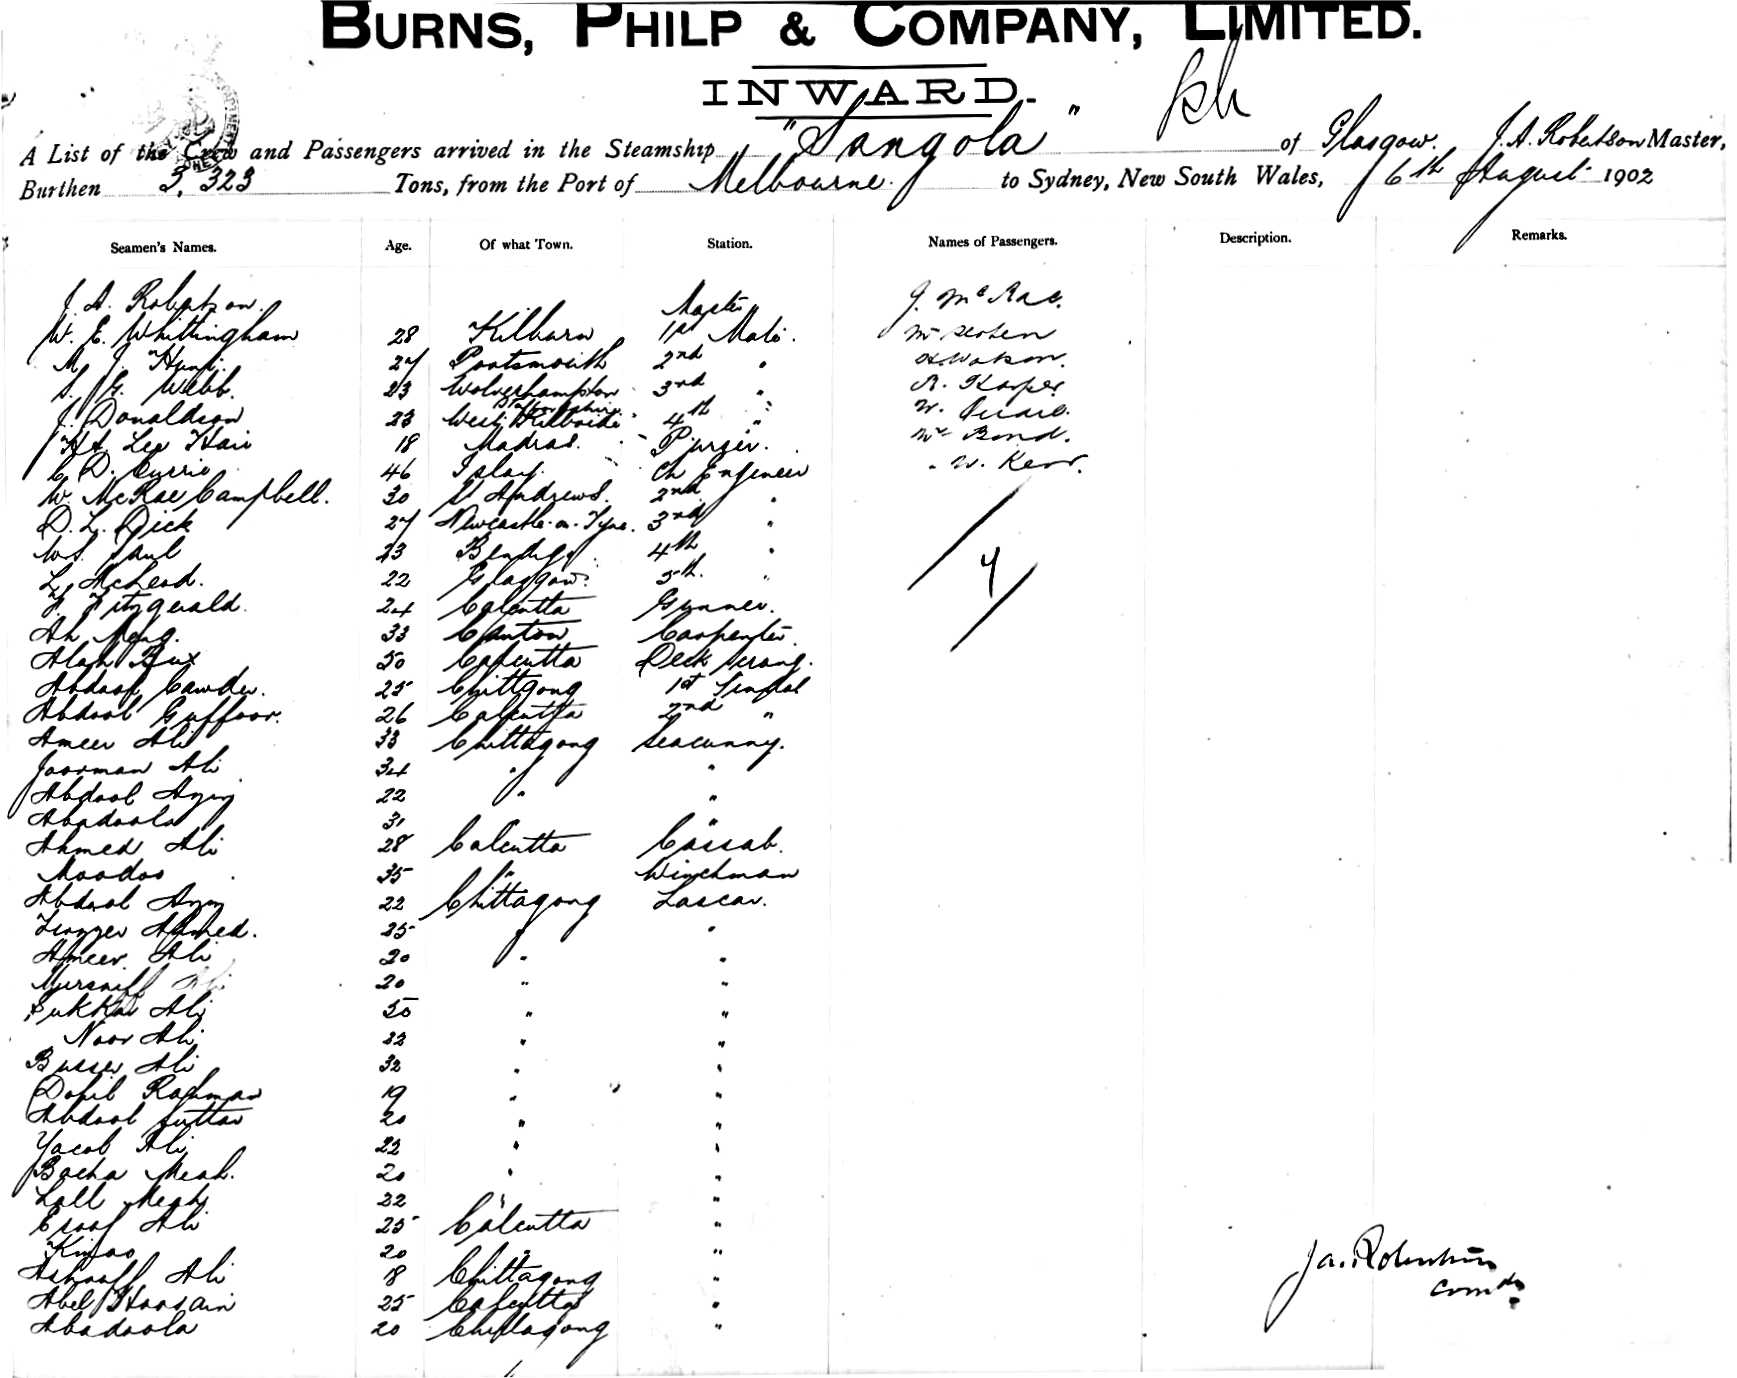 BURNS, PHILP & COMPANY, LIMITED.
INWARD.
A List of the Crew and Passengers arrived in the Steamship "Sangola" of Glasgow. J. A. Robertson Master,
Burthen 3,323 Tons, from the Port of Melbourne. to Sydney, New South Wales, 6th August 1902
Seamen's Names. Age. Of what Town. Station. Names of Passengers. Description. Remarks.
J. A. Robertson. Master J. McRae.
W. E. Whittingham 28 Kilburn 1st Mate.
M J. Hunt. 27 Portsmouth 2nd " Watson.
S. G. Webb. 23 Wolverhampton 3rd " R. Harper
J. Donaldson 23 West Kilbride 4th " W.
Lee Hair 18 Madras. Purser. Mr Bond.
C. D. Currie 46 Islay. Ch Engineer " W. Kerr.
W. McRae Campbell. 30 St Andrews. 2nd "
D. L. Dick 27 Newcastle-on-Tyne. 3rd "
W. S. Paul 23 Bendigo. 4th "
L. McLeod. 22 Glasgow. 5th. "
F. Fitzgerald. 24 Calcutta Gunner.
Ah Meng. 33 Canton Carpenter
Alah Bux 50 Calcutta Deck Serang.
Abdool Cawder. 25 Chittgong 1st Tindal
Abdool Guffoor. 26 Calcutta 2nd "
Ameer Ali 33 Chittagong Seacunny.
Joorman Ali 34 " "
Abdool Aziz 22 " "
Abadoola 31 "
Ahmed Ali 28 Calcutta Cassab.
Moodoo 35 " Winchman
Abdool Aziz 22 Chittagong Lascar.
Ahmed. 25 " "
Ameer Ali 20 " "
Ali 20 " "
Sukkur Ali 50 " "
Noor Ali 22 " "
Busser Ali 32 " "
Dobil Rahman 19 " "
Abdool Suttar 20 " "
Yacob Ali 22 " "
Bacha Meah. 20 " "
Lall Meah 22 " "
Esoof Ali 25 Calcutta "
20 " "
Ashraff Ali 18 Chittagong "
Abel Hoosain 25 Calcutta "
Abadoola 20 Chittagong "
J. A. Robertson
Comdr